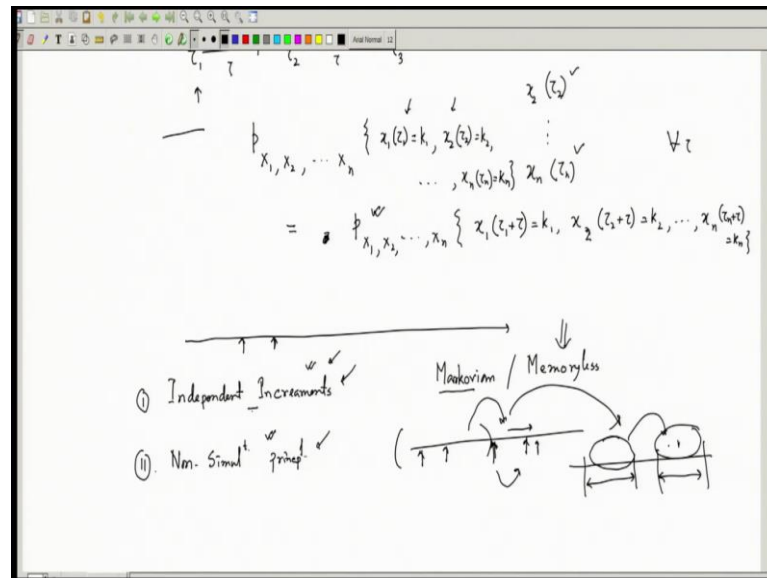 Arial Normal 12
τ₁ τ τ₂ τ τ₃
x₂(τ₂)
⋮
p_{x₁, x₂, ... xₙ} { x₁(τ₁)=k₁, x₂(τ₂)=k₂, ∀τ
..., xₙ(τₙ)=kₙ} xₙ(τₙ)
= p_{x₁, x₂, ..., xₙ} { x₁(τ₁+τ)=k₁, x₂(τ₂+τ)=k₂, ..., xₙ(τₙ+τ)
=kₙ}
Maakovian / Memoryless
① Independent Increaments
⑪ Non-Simulᵗ. princpᵗ.